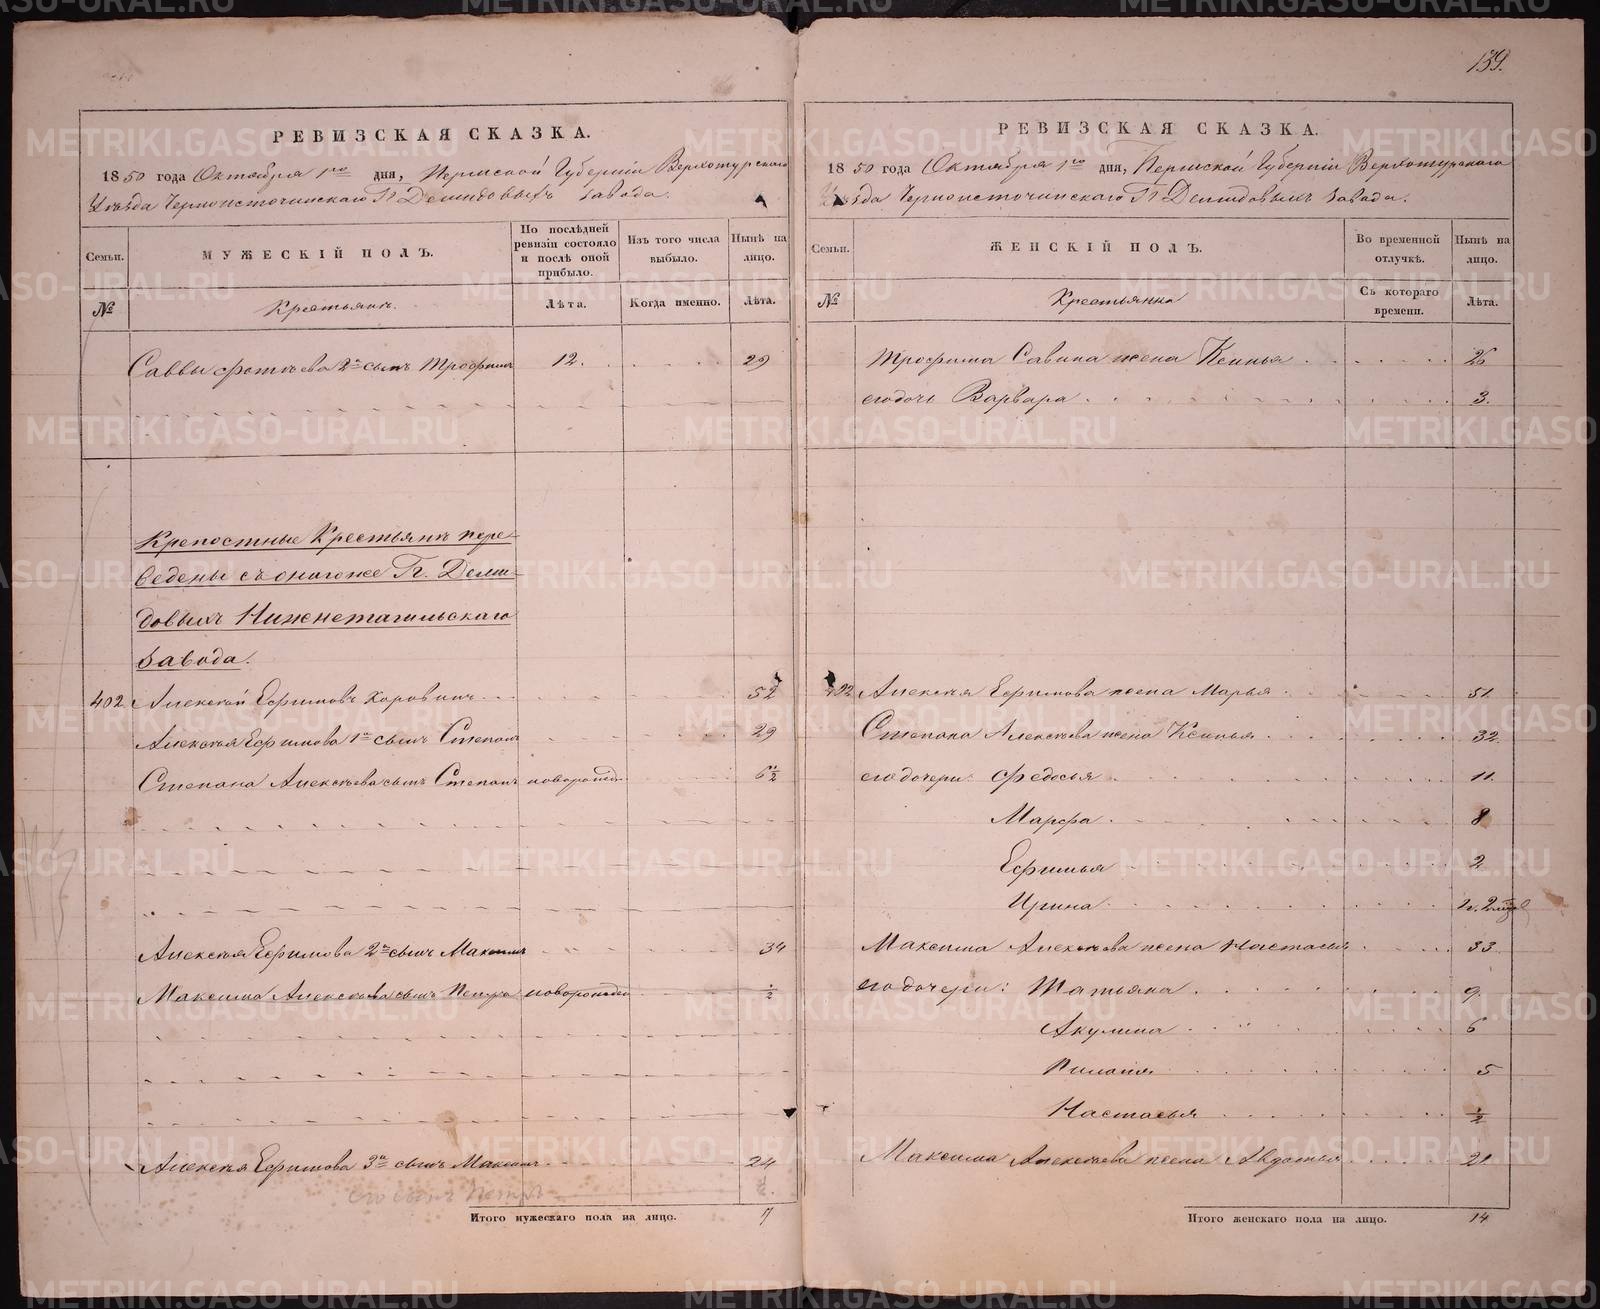 139.
РЕВИЗСКАЯ СКАЗКА.
1850 года Октября 1го дня, Пермской Губернии Верхотурского
Уѣзда Черноисточинскаго Гг. Демидовыхъ завода.
Семьи. МУЖЕСКІЙ ПОЛЪ. По послѣдней ревизіи состояло и послѣ оной прибыло. Изъ того числа выбыло. Нынѣ на лицо.
№ Крестьянъ. Лѣта. Когда именно. Лѣта.
Саввы Фатѣева 2й сынъ Трофимъ 12. 29
Крепостные Крестьянъ пере-
ведены съ оного же Гг. Деми-
довыхъ Нижнетагильскаго
завода.
402 Алексѣй Ефимовъ 52
Алексѣя Ефимова 1й сынъ Степанъ 29
Степана Алексѣева сынъ Степанъ новорожден
Алексѣя Ефимова 2й сынъ Максимъ 34
Максима Алексѣева сынъ Петръ новорожден ½
Алексѣя Ефимова 3й сынъ Максимъ 24
его сынъ Петръ ½.
Итого мужескаго пола на лицо. 7
РЕВИЗСКАЯ СКАЗКА.
1850 года Октября 1го дня, Пермской Губерніи Верхотурскаго
Уѣзда Черноисточинскаго Гг. Демидовыхъ завода.
Семьи. ЖЕНСКІЙ ПОЛЪ. Во временной отлучкѣ. Нынѣ на лицо.
№ Крестьянка Съ котораго времени. Лѣта.
Трофима Савина жена Ксинья 26
его дочь Варвара 3.
402 Алексѣя Ефимова жена Марья 51.
Степана Алексѣева жена Ксинья 32.
его дочери: Федосья 11.
Марфа 8
Ефимья 2
Ирина
Максима Алексѣева жена Настасья 33
его дочери: Татьяна 9.
Акулина 6
5
Настасья ½
Максима Алексѣева жена Авдотья 21
Итого женскаго пола на лицо. 14
METRIKI.GASO-URAL.RU